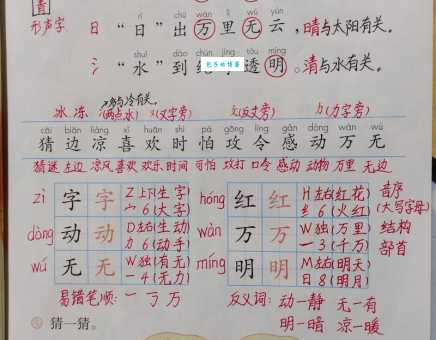 青
rì chū wàn lǐ wú yún
形声字 日 “日”出万里无云，晴与太阳有关。
shuǐ dào tòu míng
氵 “水”到 透明。清与水有关。
冫与冷有关。
冰 冻 (两点水) (又字旁) 攵(反文旁) 力(力字旁)
cāi biān liáng xǐ huān shí pà gōng lìng gǎn dòng wàn wú
猜 边 凉 喜 欢 时 怕 攻 令 感 动 万 无
猜谜 左边 凉风 喜欢 欢乐 时间 可怕 攻打 口令 感动 动物 万里 无边
zì 字 字 Z 上下(生字) hóng 红 红 H 左右(红花) 音序
宀 6 (大字) 纟 6 (火红) (大写字母)
dòng 动 动 D 左右(生动) wàn 万 万 W 独(万里) 结构
力 6 (动手) 一 3 (千万) 部首
wú 无 无 W 独(有无) míng 明 明 M 左右(明天)
一 4 (无力) 日 8 (明月)
易错笔顺：一 丂 万 反义词：动—静 无—有
猜一猜。 明—暗 凉—暖